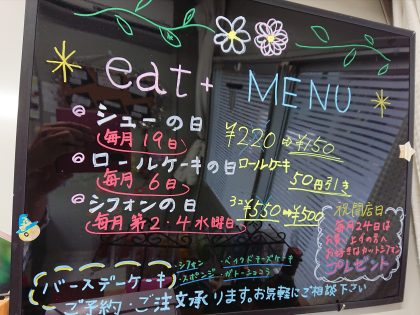 eat+ MENU
シューの日
(毎月19日) ¥220⇒¥150
ロールケーキの日 ロールケーキ
(毎月6日) 50円引き
シフォンの日
(毎月第2・4水曜日) 3コ¥550⇒¥500
祝開店日
毎月24日は
お買い上げの方へ
お好きなカットシフォン
プレゼント
・シフォン ・ベイクドチーズケーキ
・スポンジ ・ガトーショコラ
バースデーケーキ
ご予約・ご注文承ります。お気軽にご相談下さい